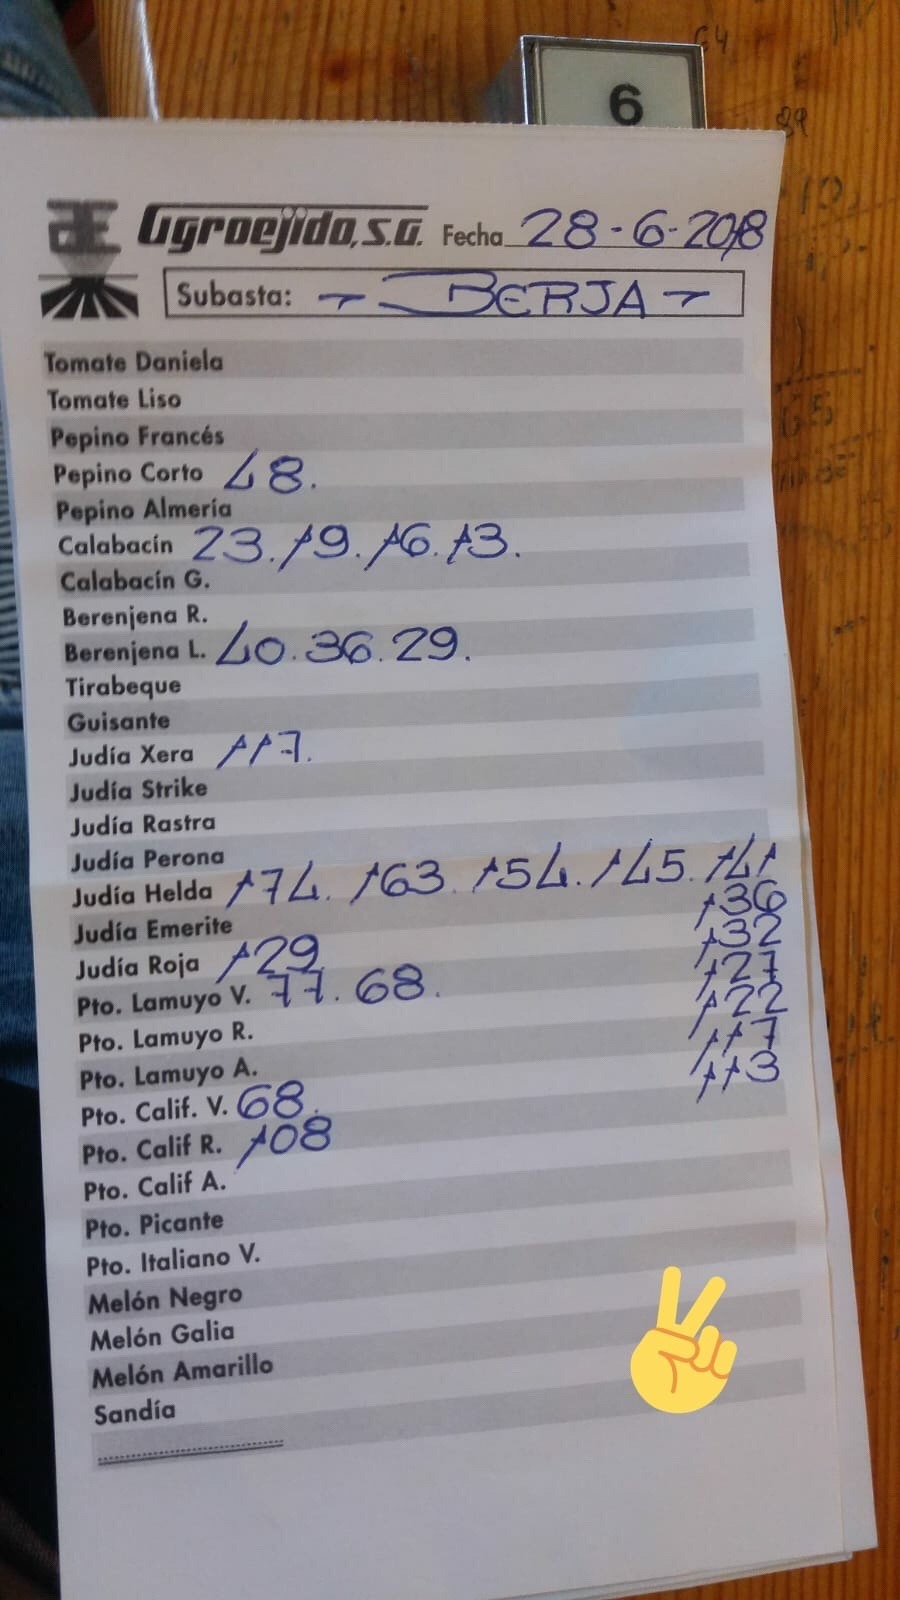 6
AE Agroejido, S.A. Fecha 28-6-2018
Subasta: - BERJA -
Tomate Daniela
Tomate Liso
Pepino Francés
Pepino Corto 48.
Pepino Almería
Calabacín 23. 19. 16. 13.
Calabacín G.
Berenjena R.
Berenjena L. 40. 36. 29.
Tirabeque
Guisante
Judía Xera 117.
Judía Strike
Judía Rastra
Judía Perona
Judía Helda 174. 163. 154. 145. 141
136
Judía Emerite 132
Judía Roja 129 127
Pto. Lamuyo V. 77. 68. 122
Pto. Lamuyo R. 117
Pto. Lamuyo A. 113
Pto. Calif. V. 68.
Pto. Calif R. 108
Pto. Calif A.
Pto. Picante
Pto. Italiano V.
Melón Negro
Melón Galia
Melón Amarillo
Sandía